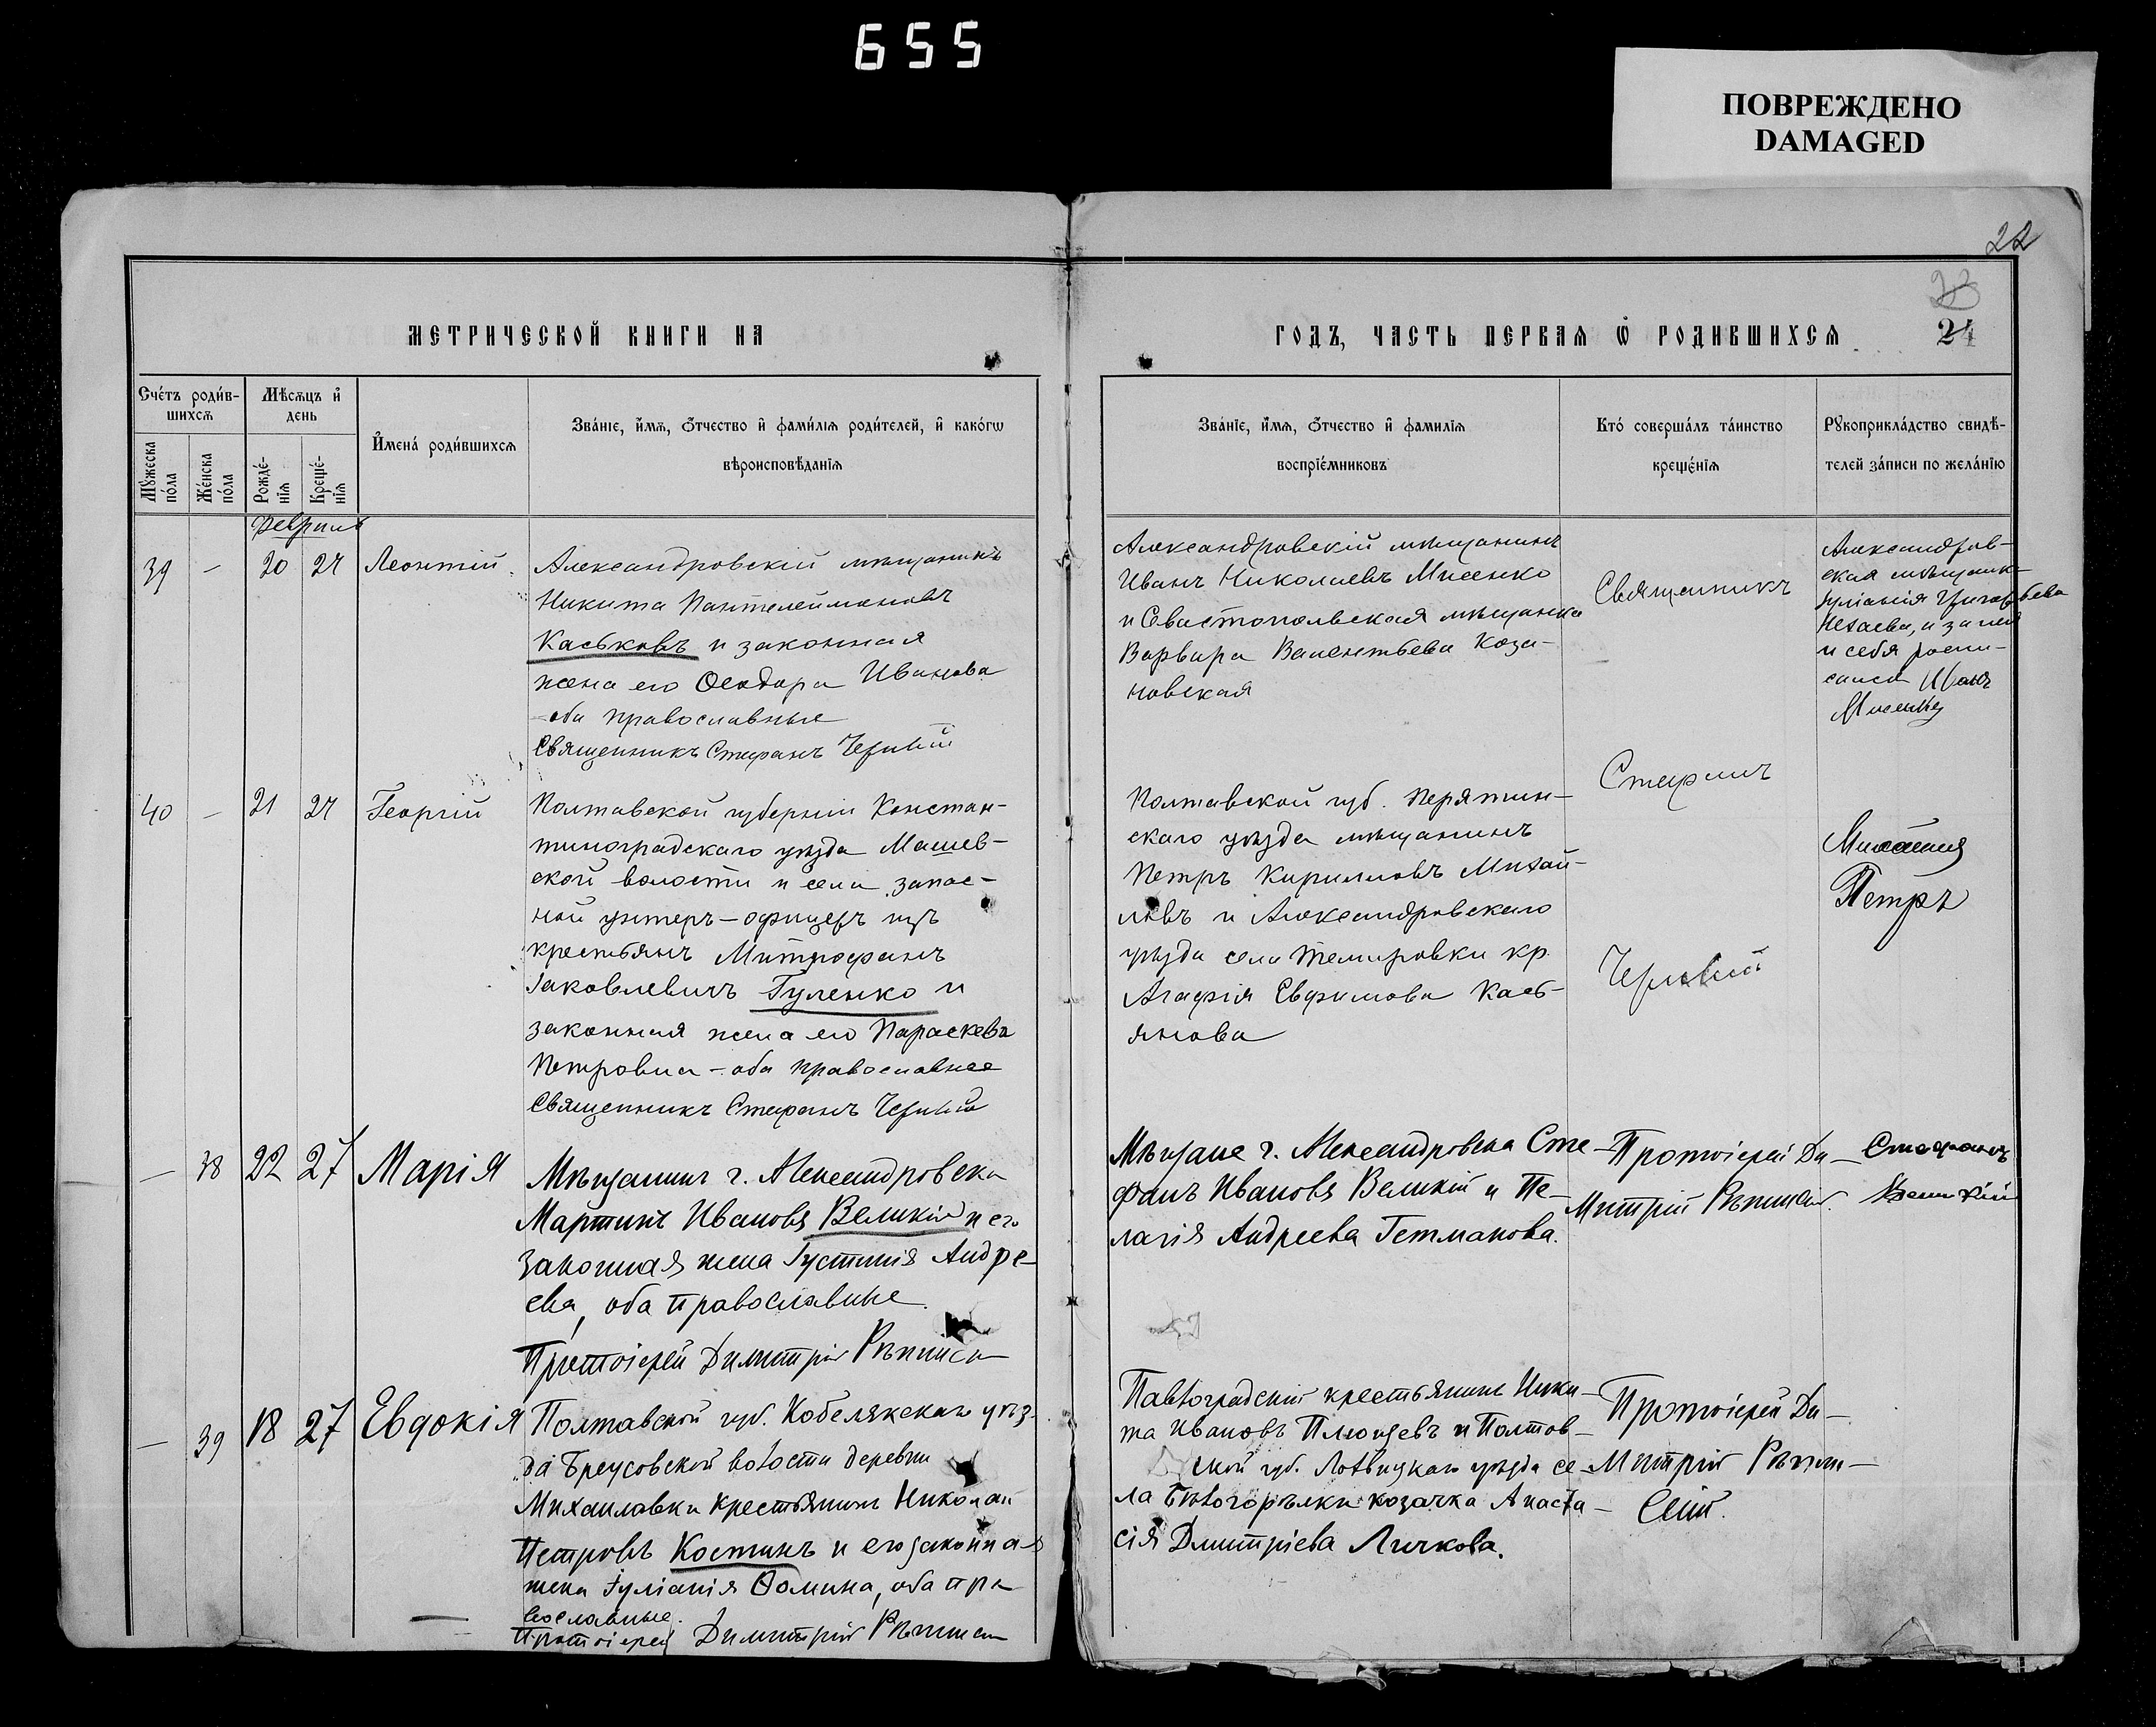 655
ПОВРЕЖДЕНО
DAMAGED
22
23
24
МЕТРИЧЕСКОЙ КНИГИ НА
ГОДЪ, ЧАСТЬ ПЕРВАѦ Ѿ РОДИВШИХСѦ
Счéтъ роди́в-
шихсѧ
Мꙋжеска
по́ла
Же́нска
по́ла
Мѣсѧцъ и҆
день
Рожде́-
нїѧ
Креще́-
нїѧ
И҆мена́ роди́вшихсѧ
Зва́нїе, и҆́мѧ, ѻ҆́тчество и҆ фами́лїѧ роди́телей, и҆ како́гѡ
вѣроисповѣ́данїѧ
Зва́нїе, и҆́мѧ, ѻ҆́тчество и҆ фами́лїѧ
воспрїе́мниковъ
Кто́ соверша́лъ та́инство
креще́нїѧ
Рꙋкоприкла́дство свидѣ́-
телей за́писи по жела́нїю
Февраль
39 — 20 27 Леонтій
Александровскій мѣщанинъ
Никита Пантелеймоновъ
Каськовъ и законная
жена его Ѳеодора Иванова
оба православные
Священникъ Стефанъ
Александровскій мѣщанинъ
Иванъ Николаевъ Мисенко
и Севастопольская мѣщанка
Варвара Валентьева Коза-
новская
Священникъ
Стефанъ
Александров-
ская
Іуліанія Григорьева
и за нея
и себя роспи-
сался Иванъ
Мисенко
40 — 21 27 Георгій
Полтавской губерніи Констан-
тиноградскаго уѣзда Машев-
ской волости и села запас-
ной унтеръ-офицеръ изъ
крестьянъ Митрофанъ
Іаковлевичъ Гуленко и
законная жена его Параскева
Петровна - оба православные
Священникъ Стефанъ
Полтавской губ. Пирятин-
скаго уѣзда мѣщанинъ
Петръ Кирилловъ Михай-
ловъ и Александровскаго
уѣзда села Темировки кр.
Агафія Евфимова Касъ-
янова
Петръ
— 38 22 27 Марія
Мѣщанинъ г. Александровска
Мартинъ Ивановъ Великій и его
законная жена Іустинія Андре-
ева, оба православные.
Протоіерей Димитрій
Мѣщане г. Александровска Сте-
фанъ Ивановъ Великій и Пе-
лагія Андреева Гетманова.
Протоіерей Ди-
митрій
Стефанъ
Великій
— 39 18 27 Евдокія
Полтавской губ. Кобелякскаго уѣз-
да Бреусовской волости деревни
Михаиловки крестьянинъ Николай
Петровъ Костинъ и его законная
жена Іуліанія Ѳомина, оба пра-
вославные.
Протоіерей Димитрій
Павлоградскій крестьянинъ Ники-
та Ивановъ Плющевъ и Полтав-
ской губ. Лохвицкаго уѣзда се-
ла Бѣлогорѣлки козачка Анаста-
сія Дмитріева Личкова.
Протоіерей Ди-
митрій